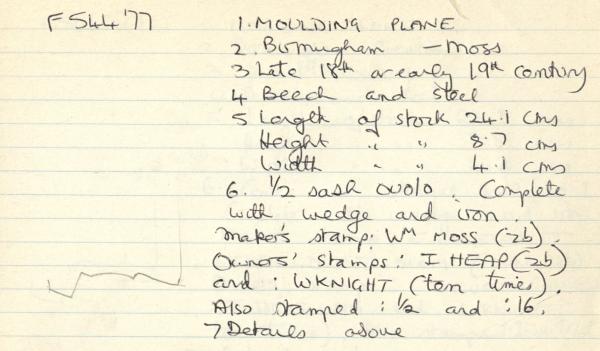 F544'77
1. MOULDING PLANE
2. Birmingham — Moss
3 Late 18th or early 19th century
4 Beech and steel
5 Length of stock 24.1 cms
Height " " 8.7 cms
Width " " 4.1 cms
6. 1/2 sash ovolo. Complete
with wedge and iron.
Maker's stamp: Wᴹ MOSS (2b).
Owners' stamps: I HEAP (2b)
and: WKNIGHT (ten times).
Also stamped: 1/2 and :16.
7 Details above